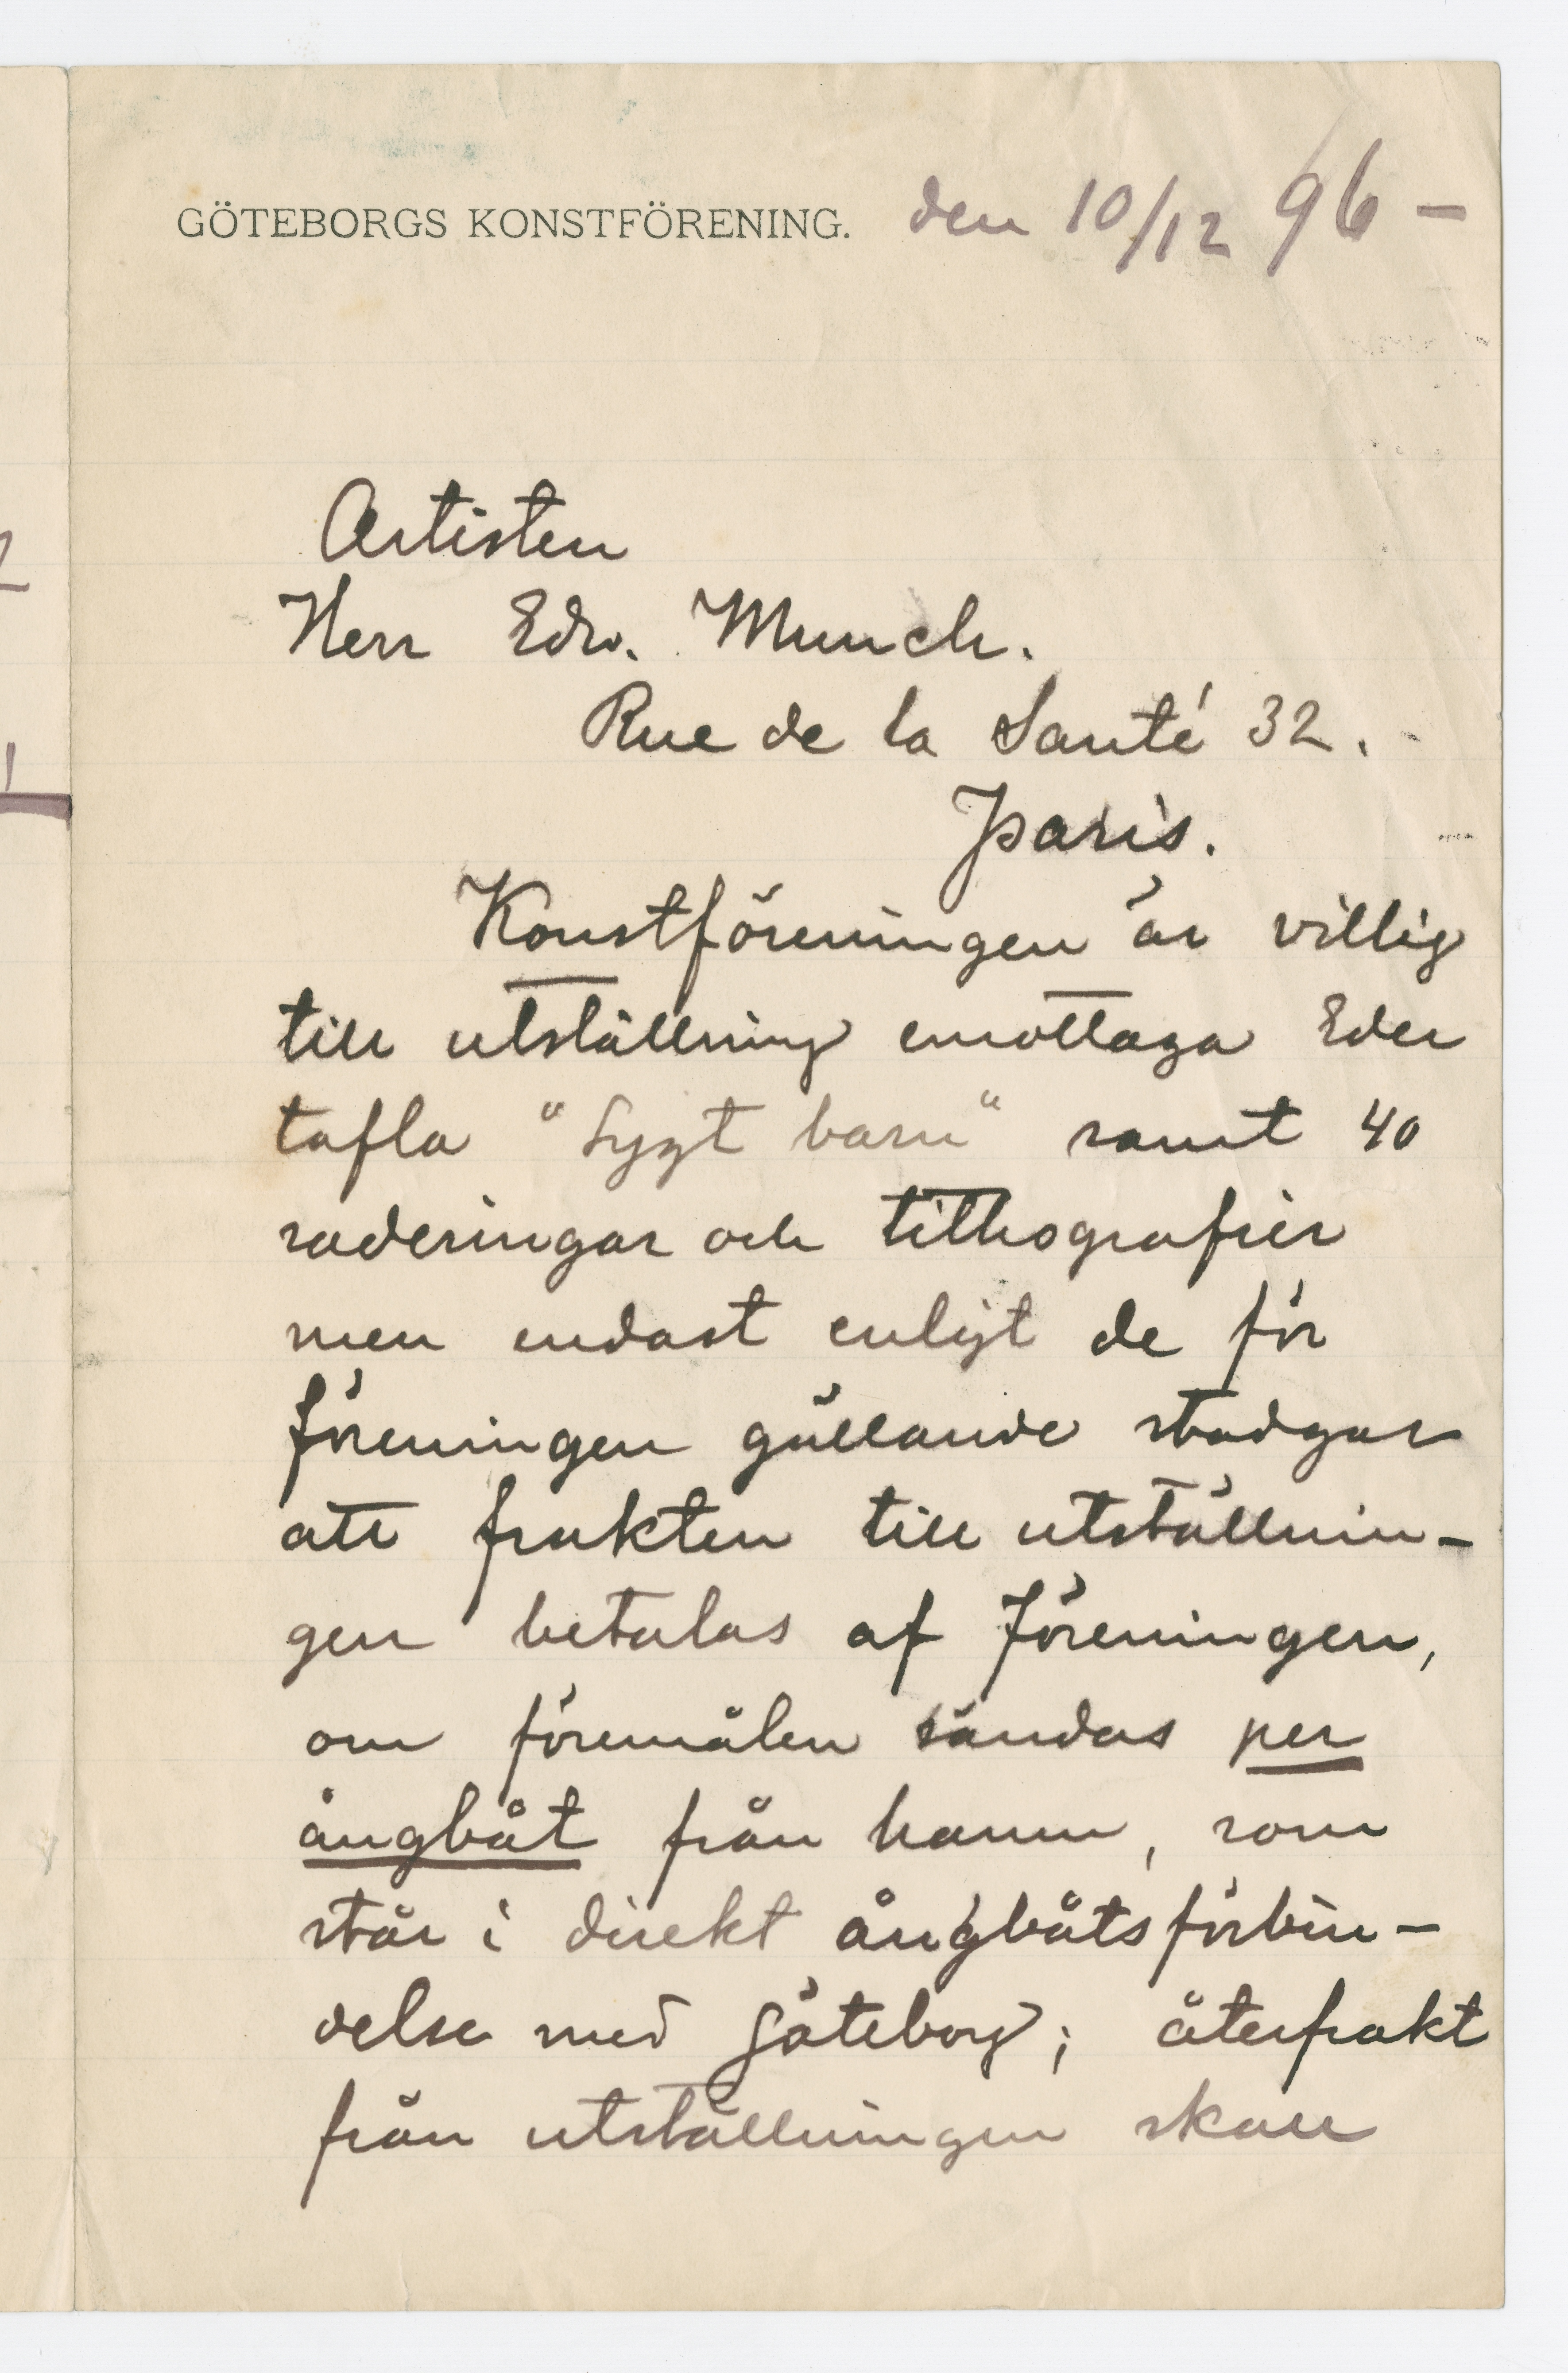 GÖTEBORGS KONSTFÖRENING. den 10/12 96 –
Artisten
Herr Edv. Munch.
Rue de la Santé 32.
Paris.
Konstföreningen är villig
till utställning emottaga Eder
tafla "Sygt barn" samt 40
raderingar och lithografier
men endast enligt de för
föreningen gällande stadgar
att frakten till utställnin-
gen betalas af föreningen,
om föremålen sändas per
ångbåt från hamn, som
står i direkt ångbåtsförbin-
delse med Göteborg; återfrakt
från utställningen skall